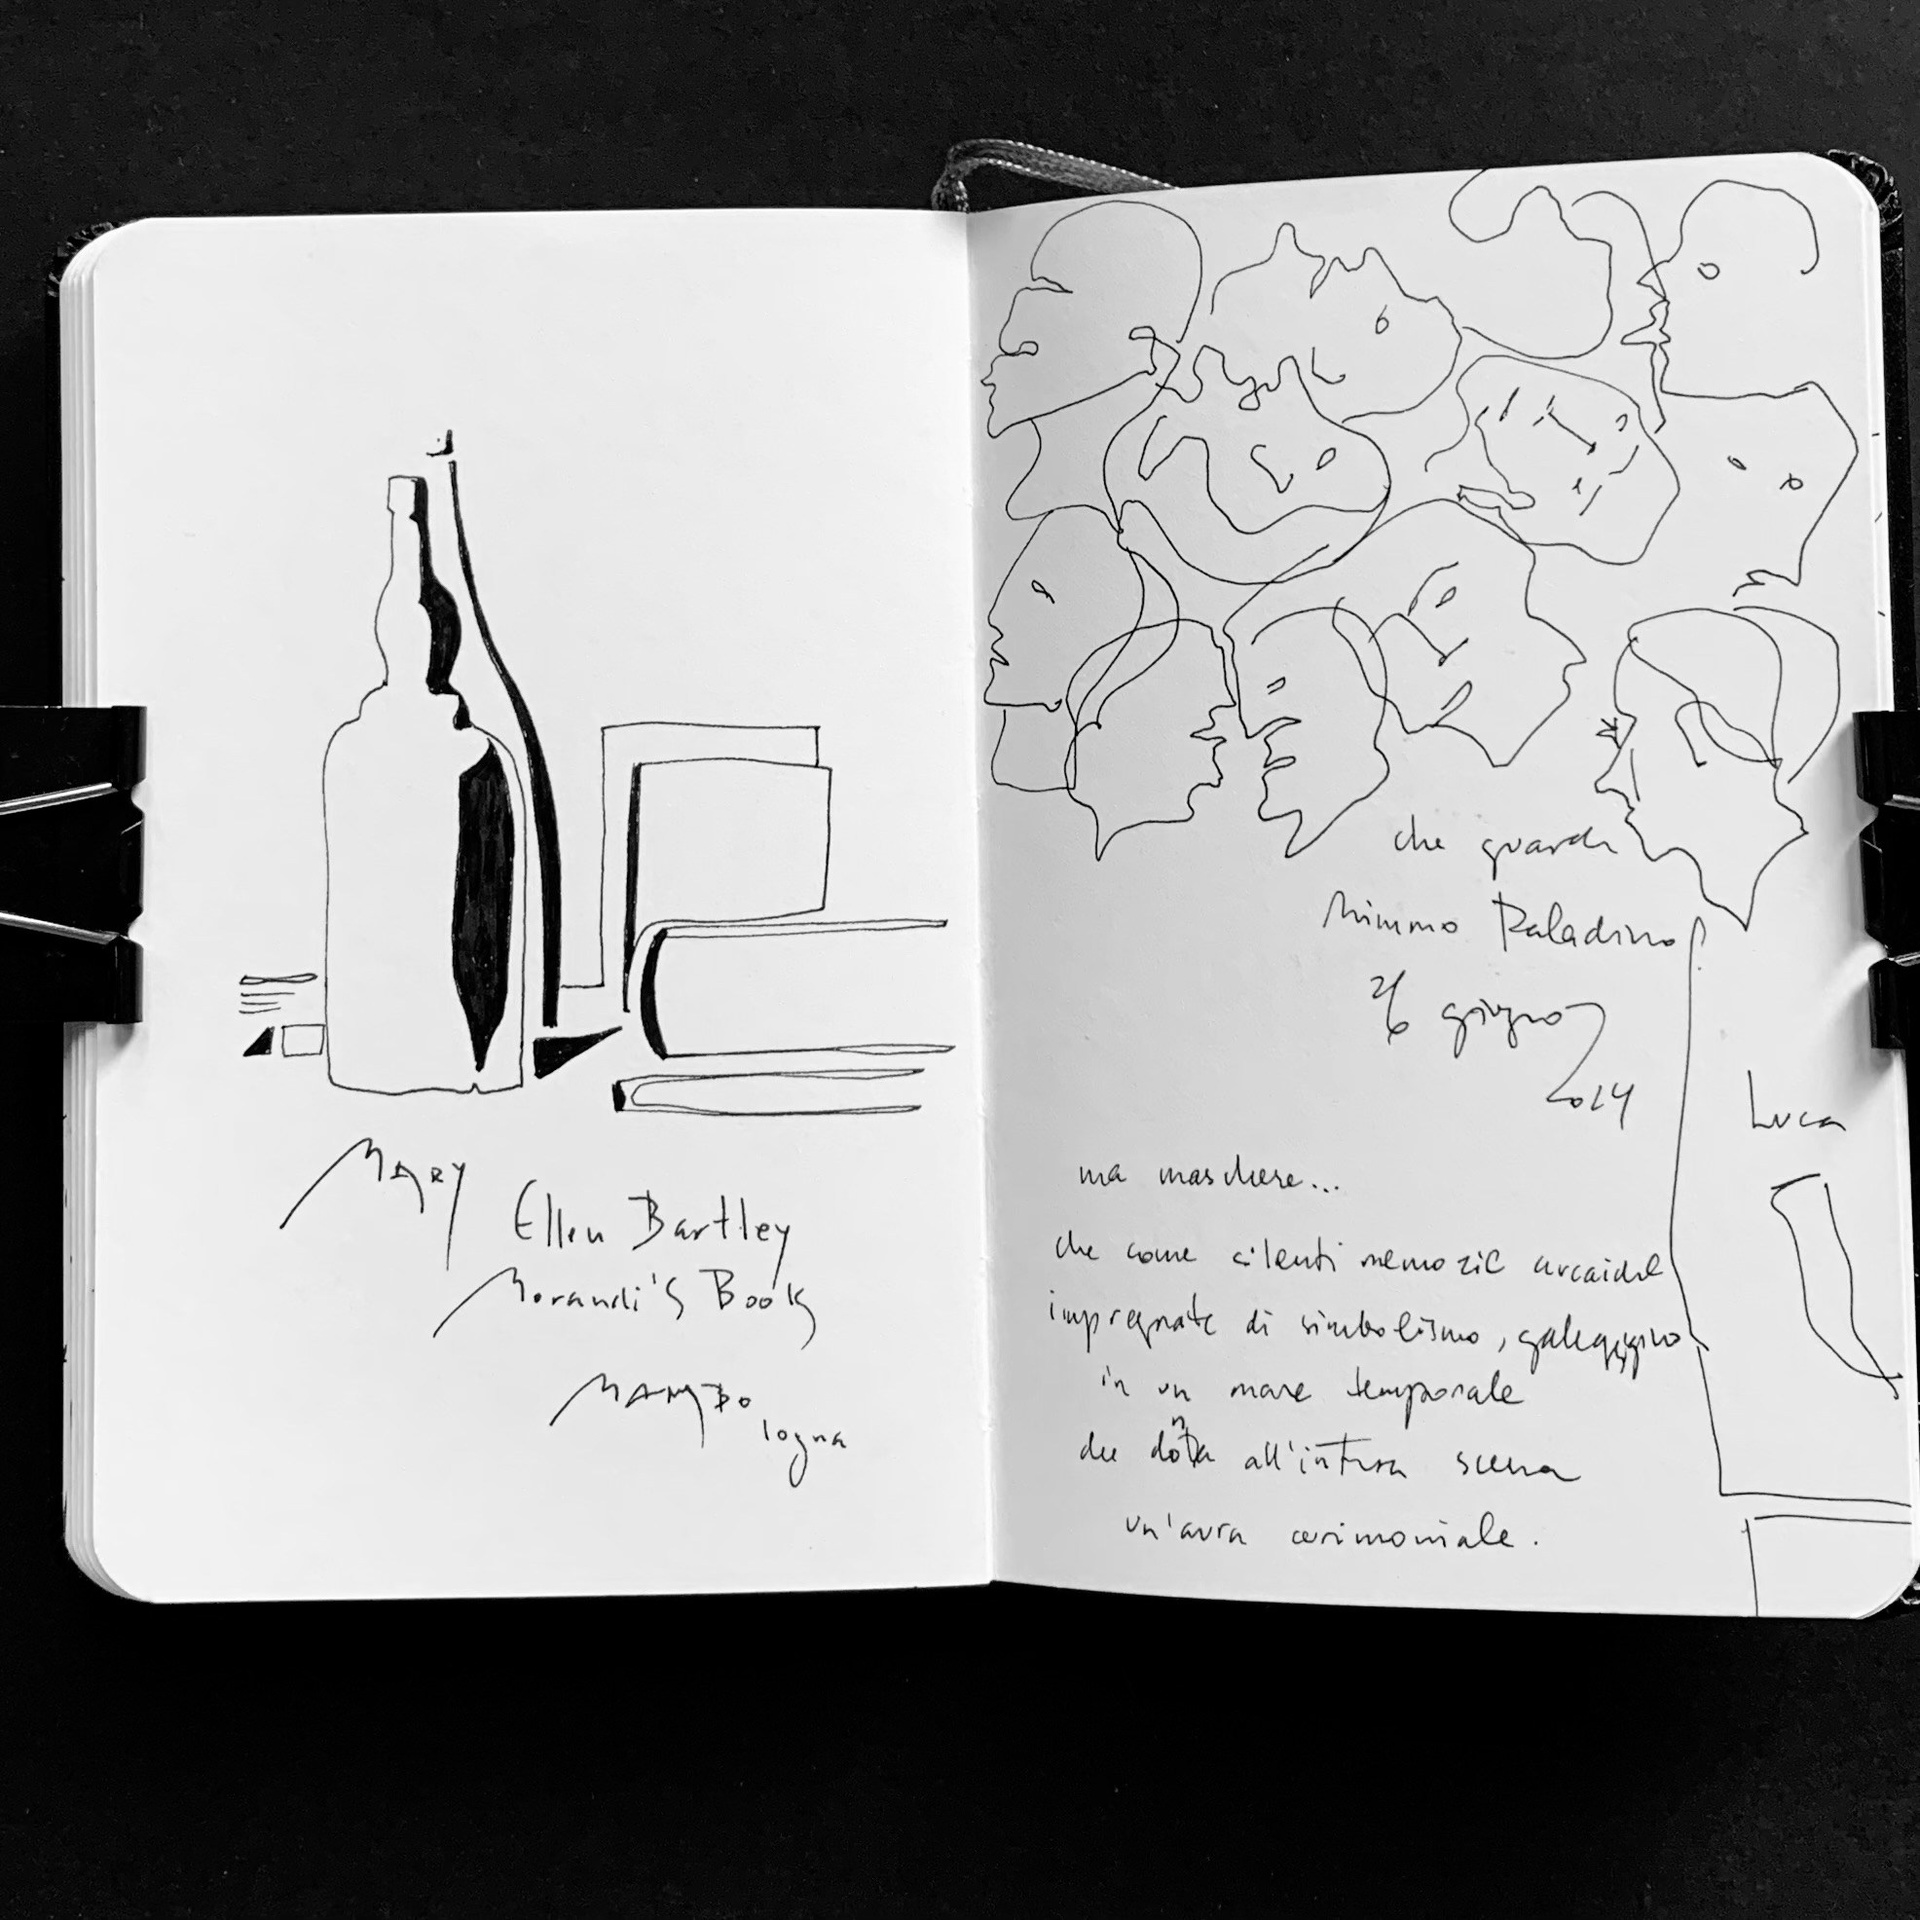 MARY
Ellen Bartley
Morandi's Books
MAMBO
logna
che guarda
Mimmo Paladino
26 giugno
2014
Luca
ma maschere...
che come silenti memorie arcaiche
impregnate di simbolismo,
in un mare temporale
che dona all'intera scena
un'aura cerimoniale.